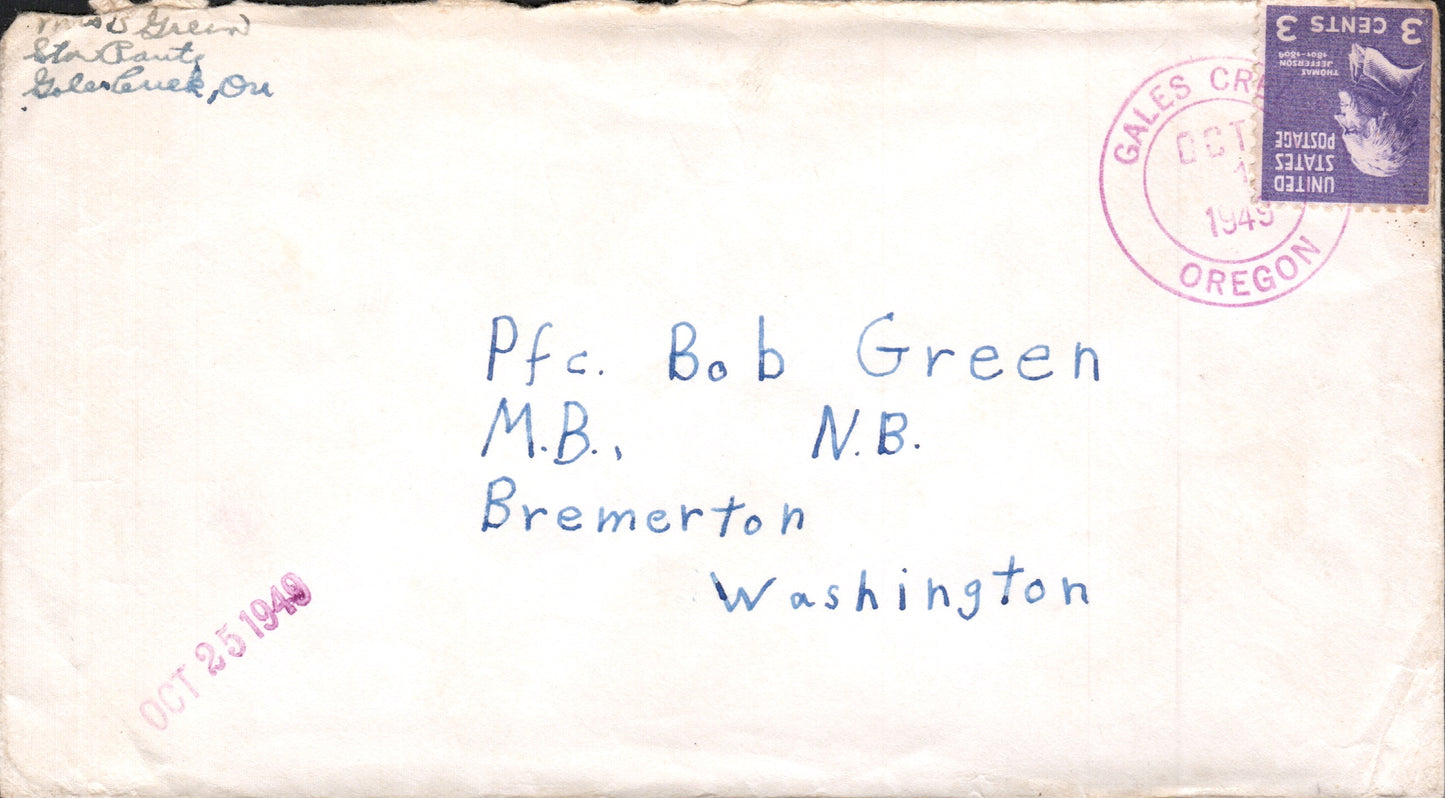 Green
Star Route
Gales Creek, Ore
3 CENTS 3
THOMAS
JEFFERSON
1801-1809
UNITED
STATES
POSTAGE
GALES CRE
OCT
1
1949
OREGON
Pfc. Bob Green
M.B., N.B.
Bremerton
Washington
OCT 25 1949